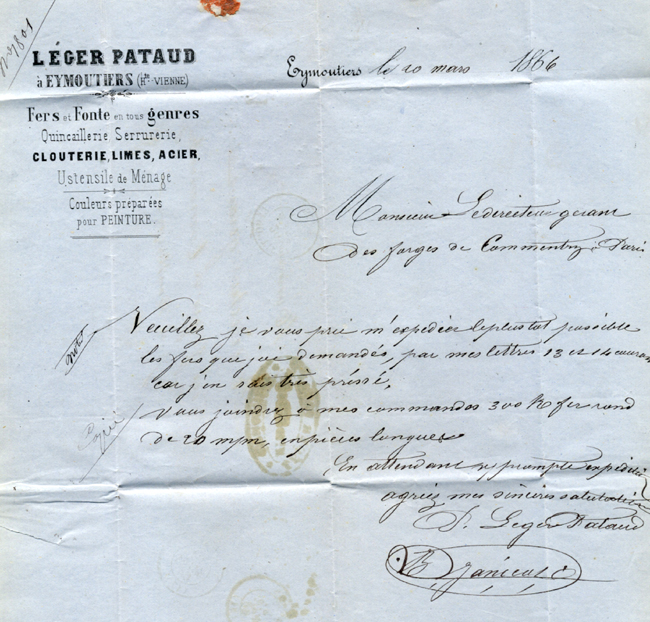 N° 7801
LÉGER PATAUD
à EYMOUTIERS (Hte-VIENNE)
Fers et Fonte en tous genres
Quincaillerie, Serrurerie,
CLOUTERIE, LIMES, ACIER,
Ustensile de Ménage
Couleurs préparées
pour PEINTURE.
Eymoutiers le 20 mars 1866
Monsieur Ledirecteur gerant
des forges de Commentry à Paris
Veuillez je vous prie m'expedier leplustot possible
les fers que jai demandés, par mes lettres 13 et 14 courant
car j'en suis très pressé,
Vous joindrez à mes commandes 300 K fer rond
de 20 mpm, en pièces longues
En attendant prompte expedition
agréez mes sincères salutations
P. Leger Pataud